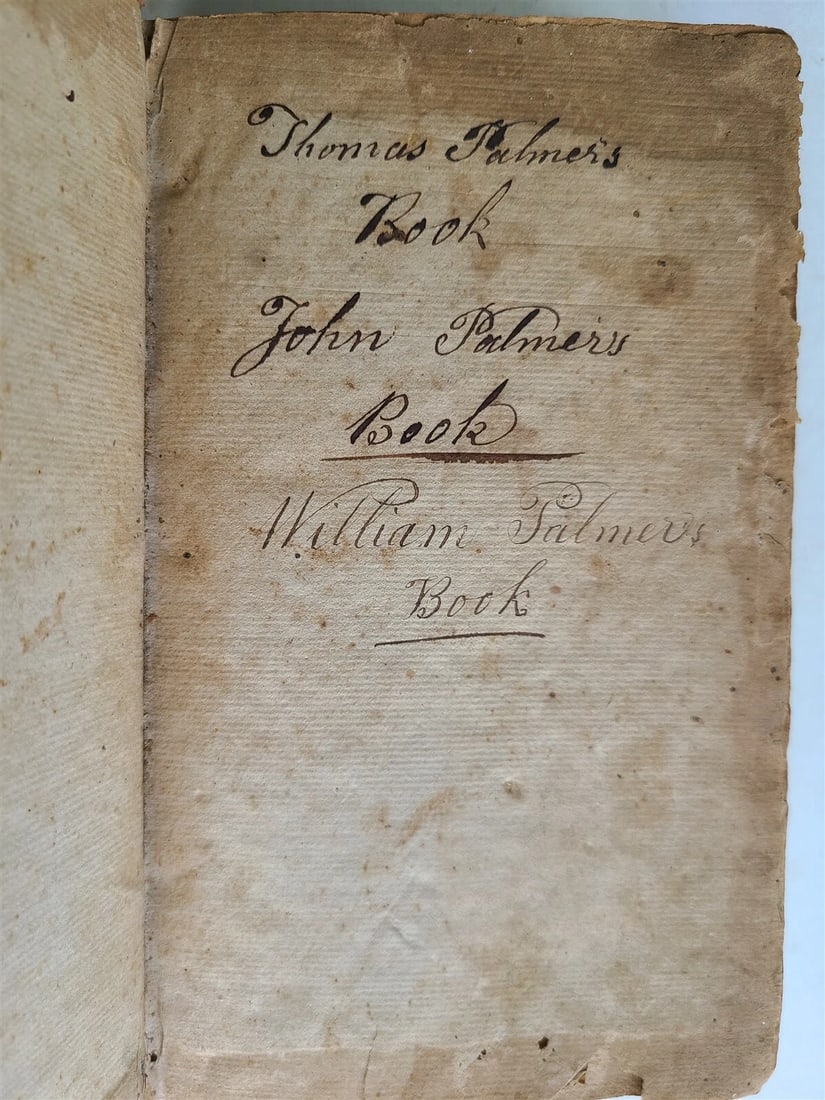 Thomas Palmers
Book
John Palmers
Book
William Palmers
Book